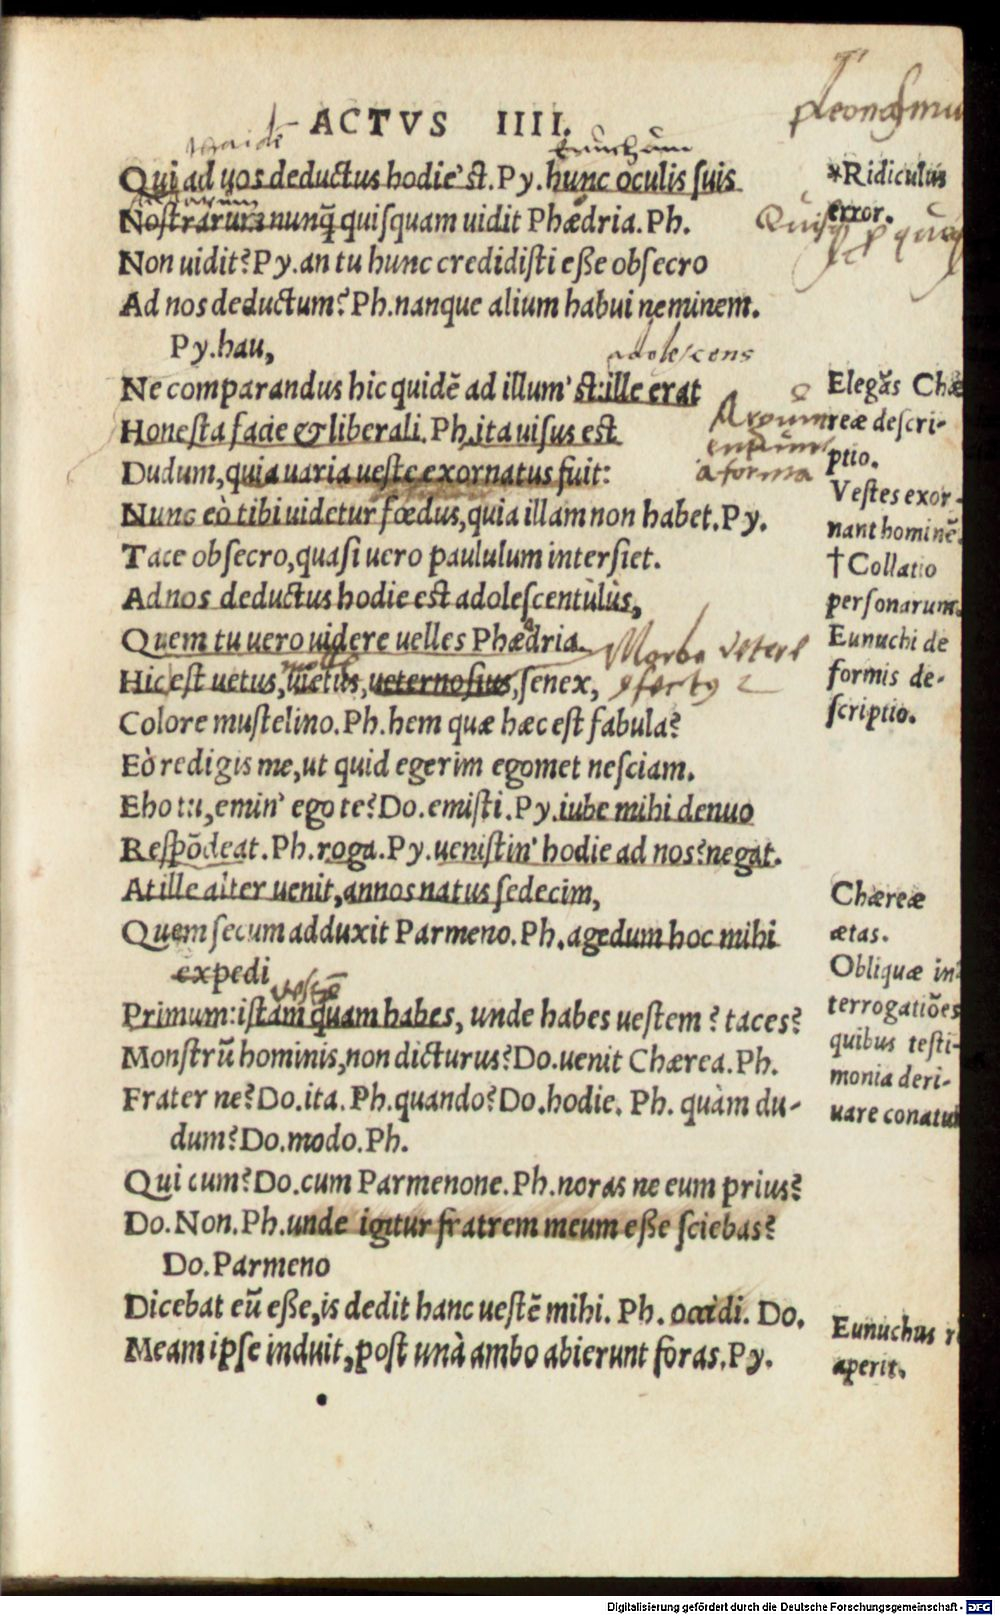 ACTVS IIII.
Eunuchum
Qui ad uos deductus hodie' st. Py. hunc oculis suis
Nostrarum nunq̃ quiſquam uidit Phædria. Ph.
Non uidit? Py. an tu hunc credidiſti eße obſecro
Ad nos deductum? Ph. nanque alium habui neminem.
Py. hau,
adoleſcens
Ne comparandus hic quidē ad illum' st: ille erat
Honeſta facie & liberali. Ph. ita uiſus eſt
Dudum, quia uaria ueſte exornatus fuit:
Nunc eò tibi uidetur fœdus, quia illam non habet. Py.
Tace obſecro, quaſi uero paululum interſiet.
Ad nos deductus hodie eſt adoleſcentulus,
Quem tu uero uidere uelles Phædria.
Hic eſt uetus, uietus, ueternoſius, ſenex,
Colore muſtelino. Ph. hem quæ hæc eſt fabula?
Eò redigis me, ut quid egerim egomet neſciam.
Eho tu, emin' ego te? Do. emiſti. Py. iube mihi denuo
Reſpōdeat. Ph. roga. Py. ueniſtin' hodie ad nos? negat.
At ille alter uenit, annos natus ſedecim,
Quem ſecum adduxit Parmeno. Ph. agedum hoc mihi
expedi
ueſtē
Primum: iſtam quam habes, unde habes ueſtem? taces?
Monſtrū hominis, non dicturus? Do. uenit Chærea. Ph.
Frater ne? Do. ita. Ph. quando? Do. hodie. Ph. quàm du-
dum? Do. modo. Ph.
Qui cum? Do. cum Parmenone. Ph. noras ne eum prius?
Do. Non. Ph. unde igitur fratrem meum eße ſciebas?
Do. Parmeno
Dicebat eū eße, is dedit hanc ueſtē mihi. Ph. occidi. Do.
Meam ipſe induit, poſt unà ambo abierunt foras. Py.
*Ridiculus
error.
Elegās Chæ
reæ deſcri-
ptio.
a forma
Veſtes exor-
nant hominē.
†Collatio
perſonarum.
Eunuchi de
formis de-
ſcriptio.
Morbo
Chæreæ
ætas.
Obliquæ in
terrogatiões
quibus teſti-
monia deri-
uare conatur
Eunuchus r
aperit.
Digitalisierung gefördert durch die Deutsche Forschungsgemeinschaft - DFG